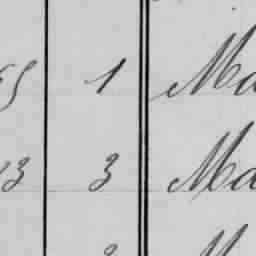 65 1 Ma
13 3 Ma